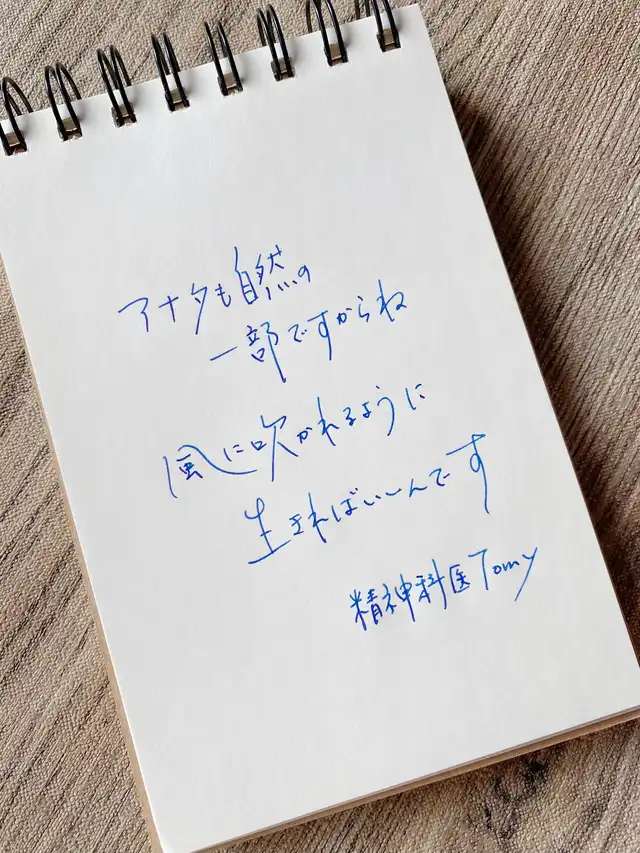 アナタも自然の
一部ですからね
風に吹かれるように
生きればいいんです
精神科医Tomy